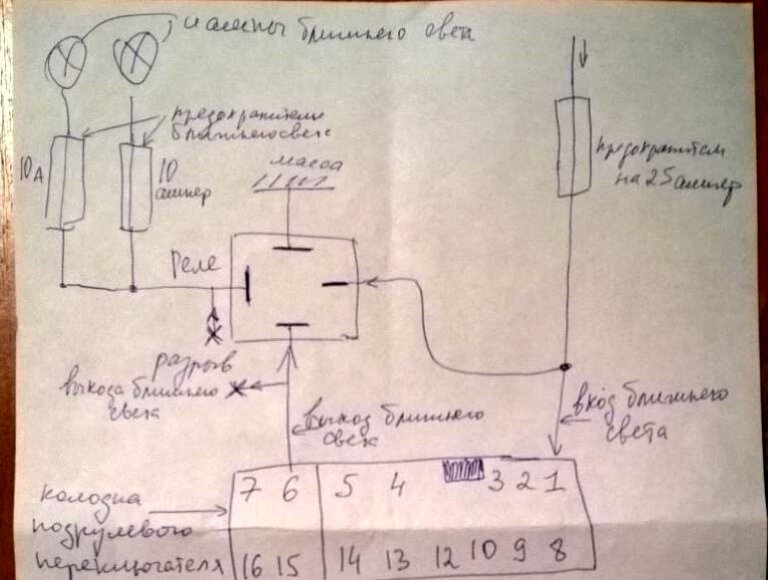 лампы ближнего света
предохранители
ближнего света
10 А
10
ампер
масса
предохранитель
на 25 ампер
Реле
разрыв
выхода ближнего
света
выход ближнего
света
вход ближнего
света
колодка
подрулевого
переключателя
7 6 5 4 3 2 1
16 15 14 13 12 10 9 8